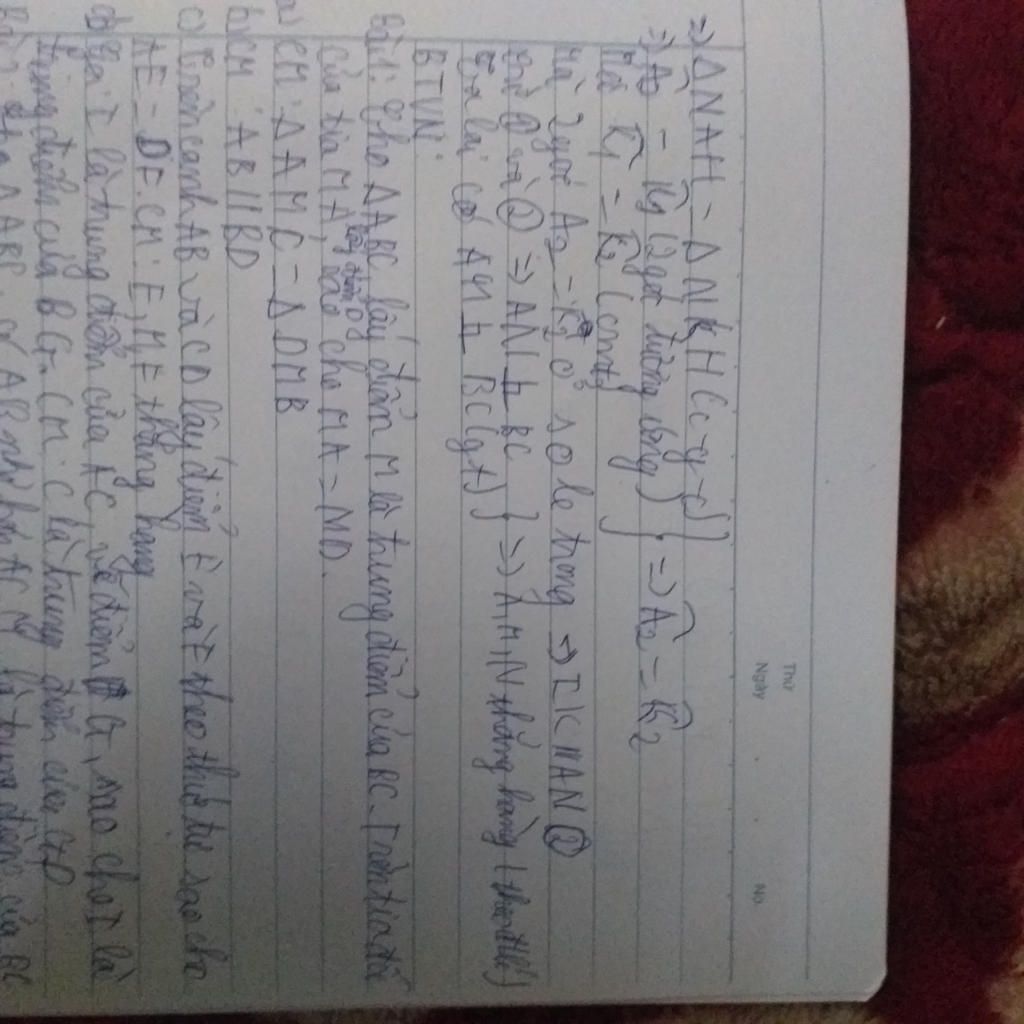 Thứ
Ngày . . No.
=> ΔNAH = ΔNKH (c-g-c)
=> = (2 góc tương ứng) } => Â₂ = K̂₂
Mà K̂₁ = K̂₂ (cmt)
Mà 2 góc A₂ = K₂ ở so le trong => IK // AN ②
Từ ① và ② => AN ⊥ BC } => A, M, N thẳng hàng
Ta lại có AM ⊥ BC (gt)
BTVN:
Bài 1: Cho ΔABC, lấy điểm M là trung điểm của BC. Trên tia đối
của tia MA, lấy điểm D sao cho MA = MD.
a) CM: ΔAMC = ΔDMB
b) CM: AB // BD
c) Trên cạnh AB và CD lấy điểm E và F theo thứ tự sao cho
AE = DF. CM: E, M, F thẳng hàng
d) Gọi I là trung điểm của AC, vẽ điểm G, sao cho I là
trung điểm của BG. CM: C là trung điểm của GD
Cho ΔABC, có AB nhỏ hơn AC là trung điểm của BC